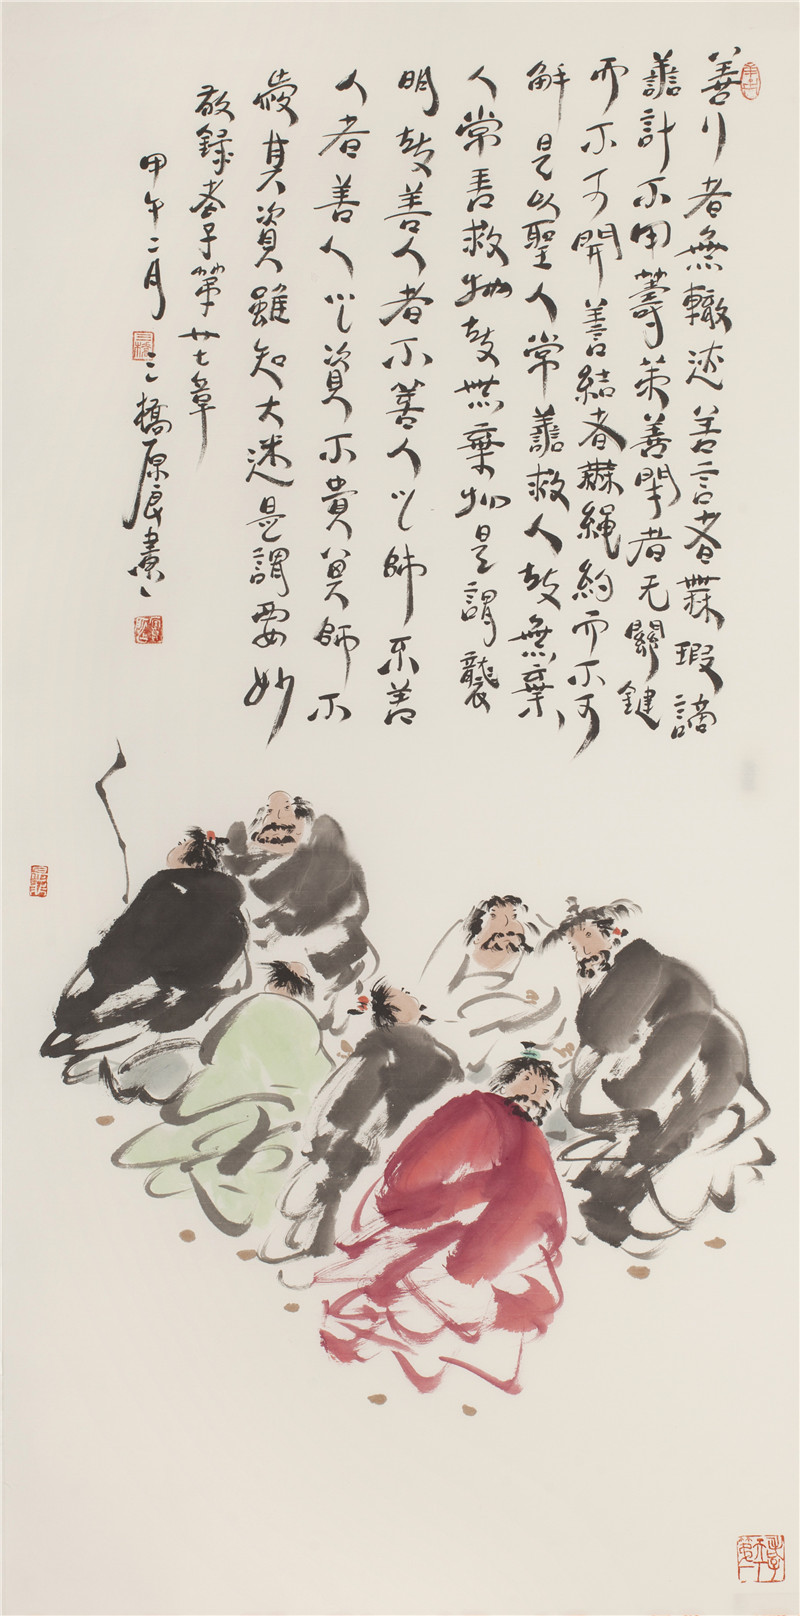 善行者無轍迹善言者無瑕謫
善計不用籌策善閉者无關鍵
而不可開善結者無繩約而不可
解是以聖人常善救人故無棄
人常善救物故無棄物是謂襲
明故善人者不善人之師不善
人者善人之資不貴其師不
愛其資雖知大迷是謂要妙
敬錄老子第廿七章
甲午二月
三橋原辰畫